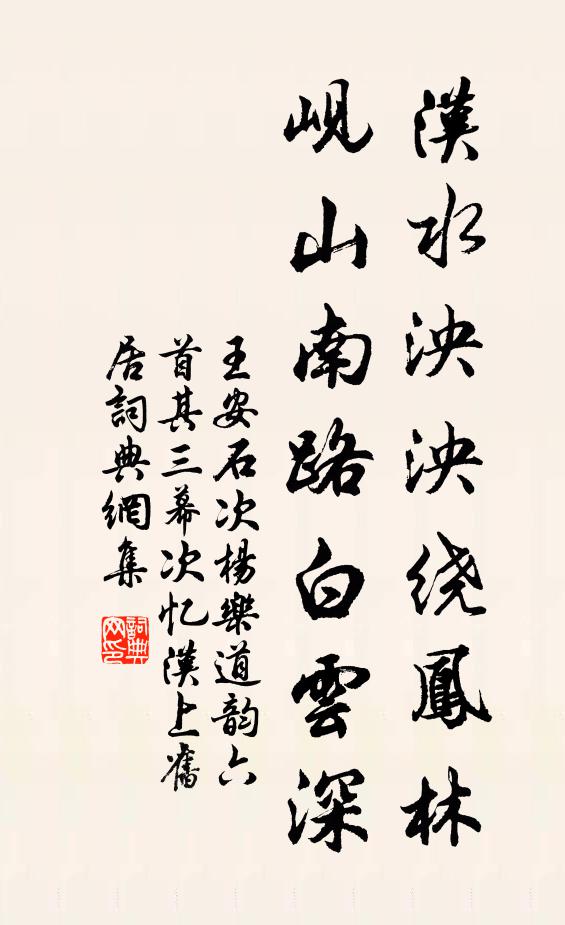 漢水泱泱绕鳳林
峴山南路白雲深
王安石次楊樂道韵六
首其三幕次忆漢上舊
居詞典網集
詞典网印